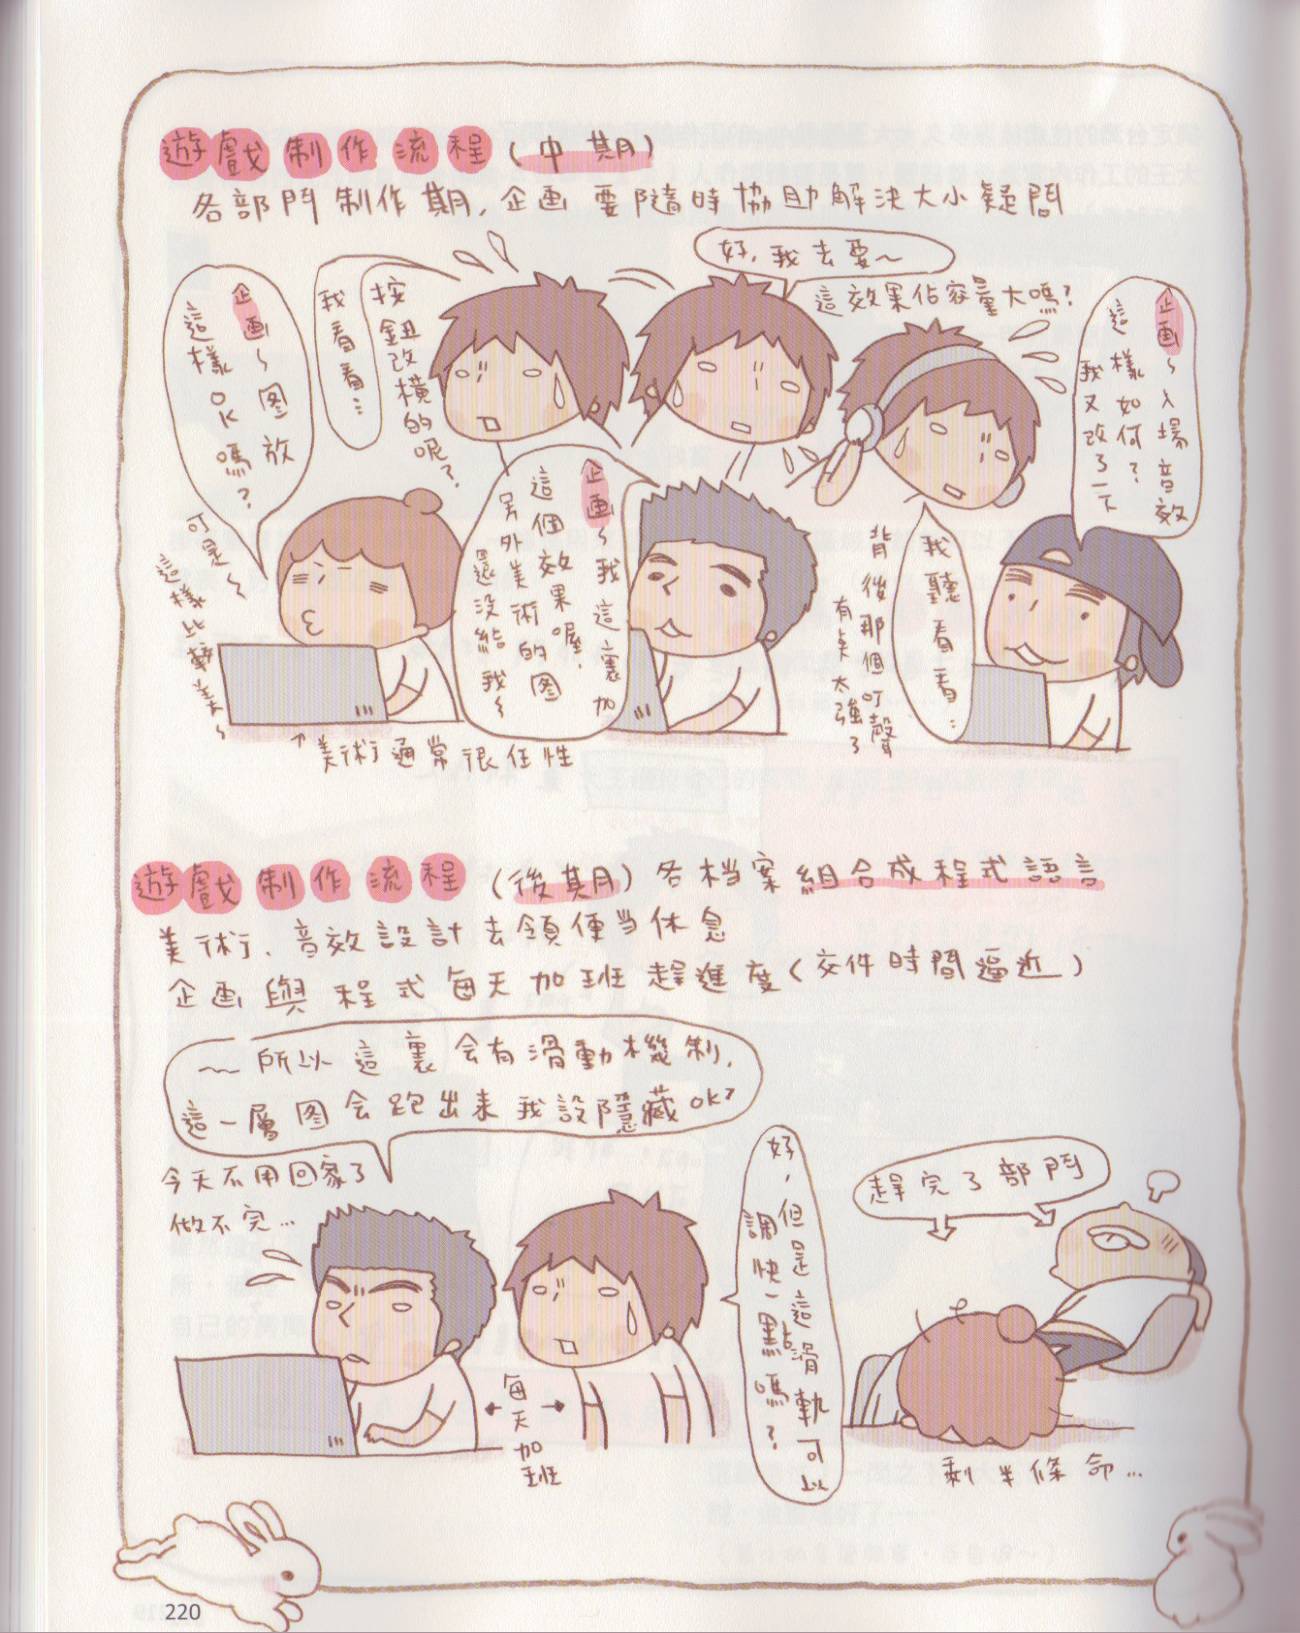 遊戲制作流程(中期)
各部門制作期,企画要隨時協助解決大小疑問
企画~图放
這樣OK嗎?
可是~
這樣比較美~
按鈕改橫的呢?
我看看…
好,我去要~
這效果佔容量大嗎?
企画~我這裏加
這個效果喔,
另外美術的图
還沒給我~
企画~入場音效
這樣如何?
我又改了一下
我聽看看…
背後那個叮聲
有点太強了
↑美術通常很任性
遊戲制作流程(後期)各档案組合成程式語言
美術、音效設計去領便当休息
企画與程式每天加班趕進度(交件時間逼近)
~所以這裏会有滑動機制,
這一層图会跑出来我設隱藏OK?
今天不用回家了
做不完…
每天加班
好,但是這滑軌可以
調快一點嗎?
趕完了部門
剩半條命…
220